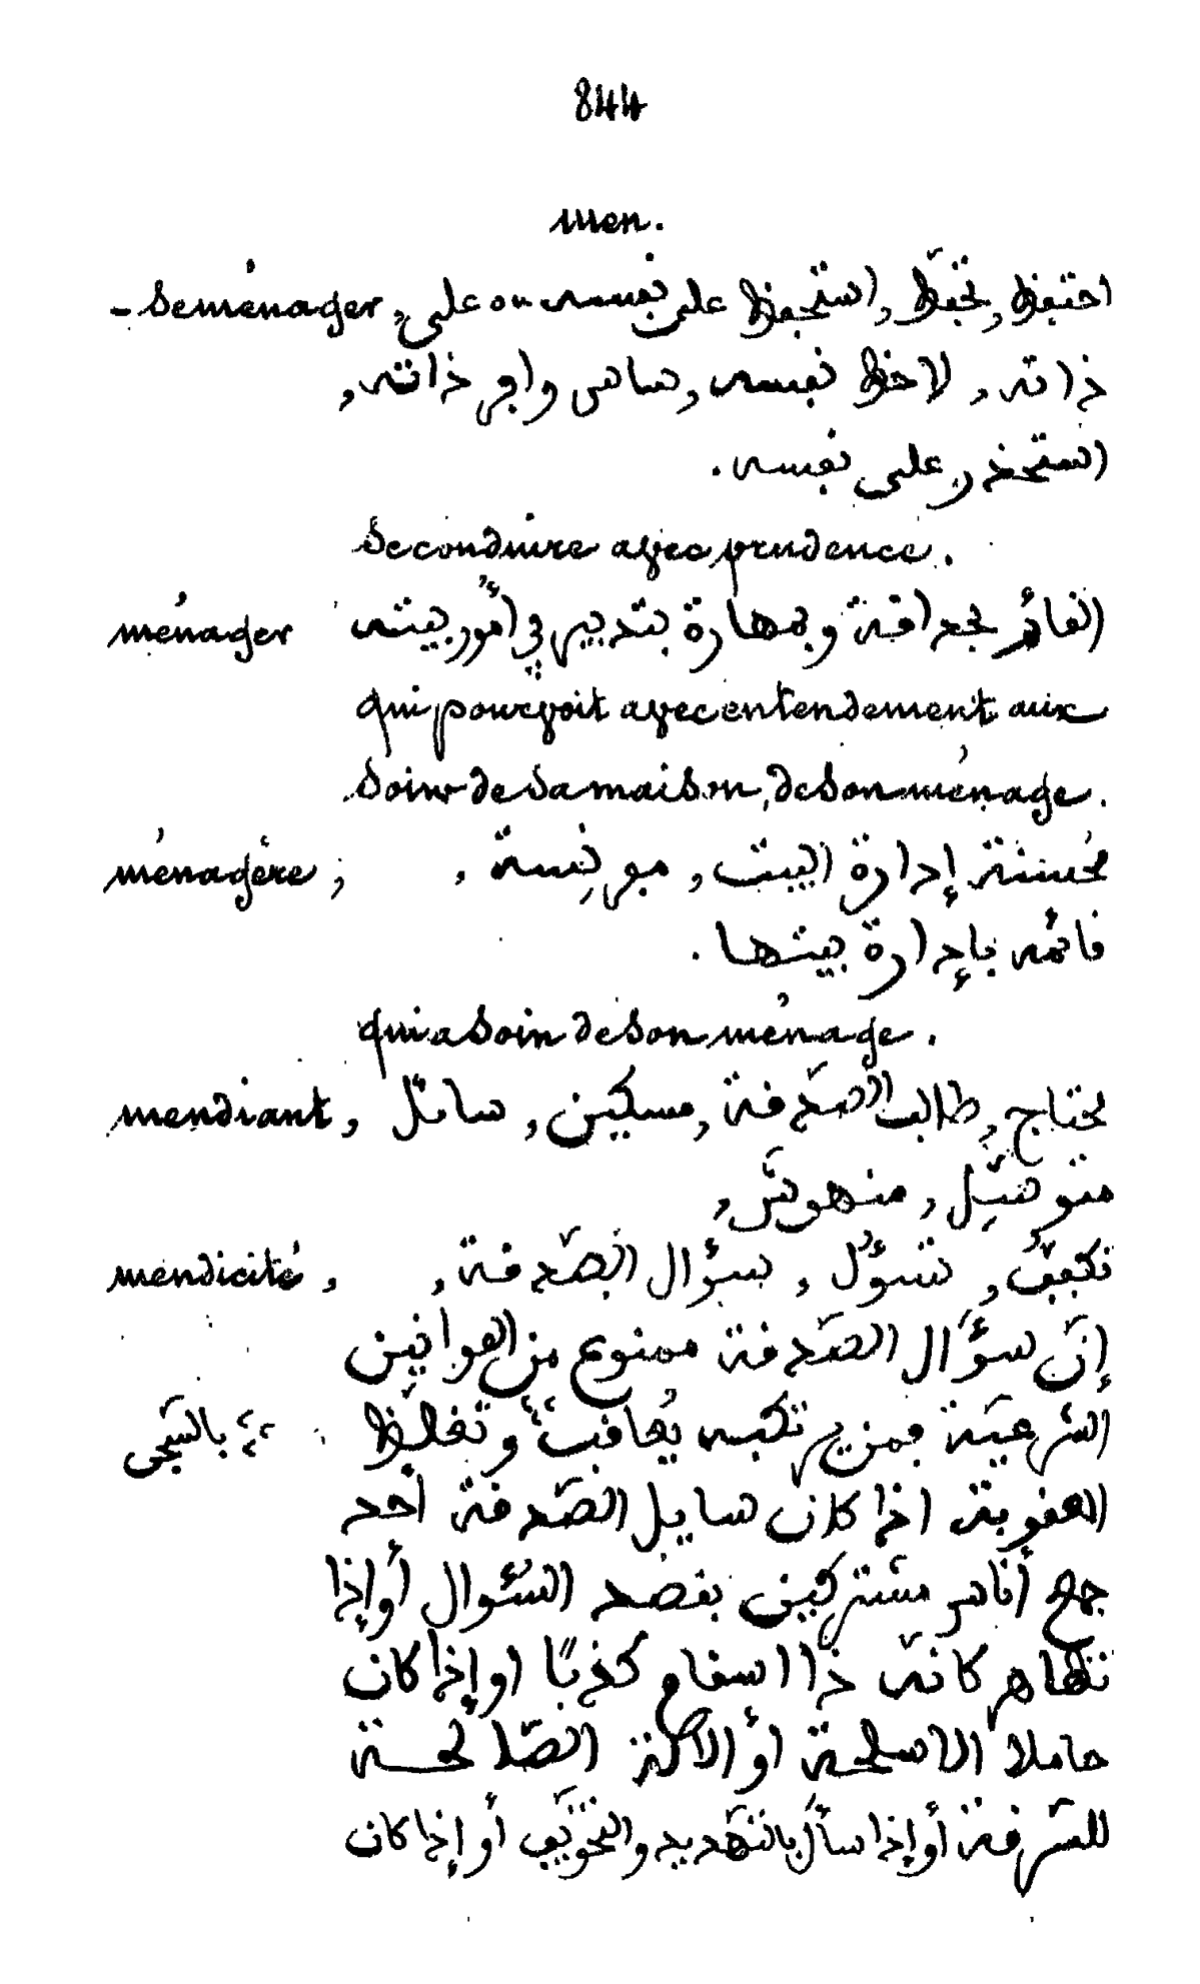 844
men.
- se ménager, احتفظ, تحفّظ, استحفظ على نفسه ou على
ذاته, لاحظ نفسه, ساس ذاته,
استحذر على نفسه.
se conduire avec prudence.
ménager القائم بحداقة وبمهارة بتدبير في أمور بيته
qui pourvoit avec entendement aux
soins de sa maison, de son ménage.
ménagère; مُحسنة إدارة البيت,
قائمه بإدارة بيتها.
qui a soin de son ménage.
mendiant, محتاج, طالب الصّدقة, مسكين, سائل,
متوسّل,
mendicité, تكفّف, تسوّل, سؤال الصّدقة,
إنّ سؤال الصّدقة ممنوع من القوانين
الشرعيّة فمن يرتكبه يُعاقب بالسّجن وتغلّظ
العقوبة اذا كان سايل الصّدقة أحد
جمع أناس مشتركين بقصد السّؤال أو إذا
تظاهر كانّه ذا اسقام كذبًا او إذا كان
حاملا الاسلحة أو الالة الصّالحة
للسّرقة أو إذا سأل بالتهديد والتخويف أو إذا كان